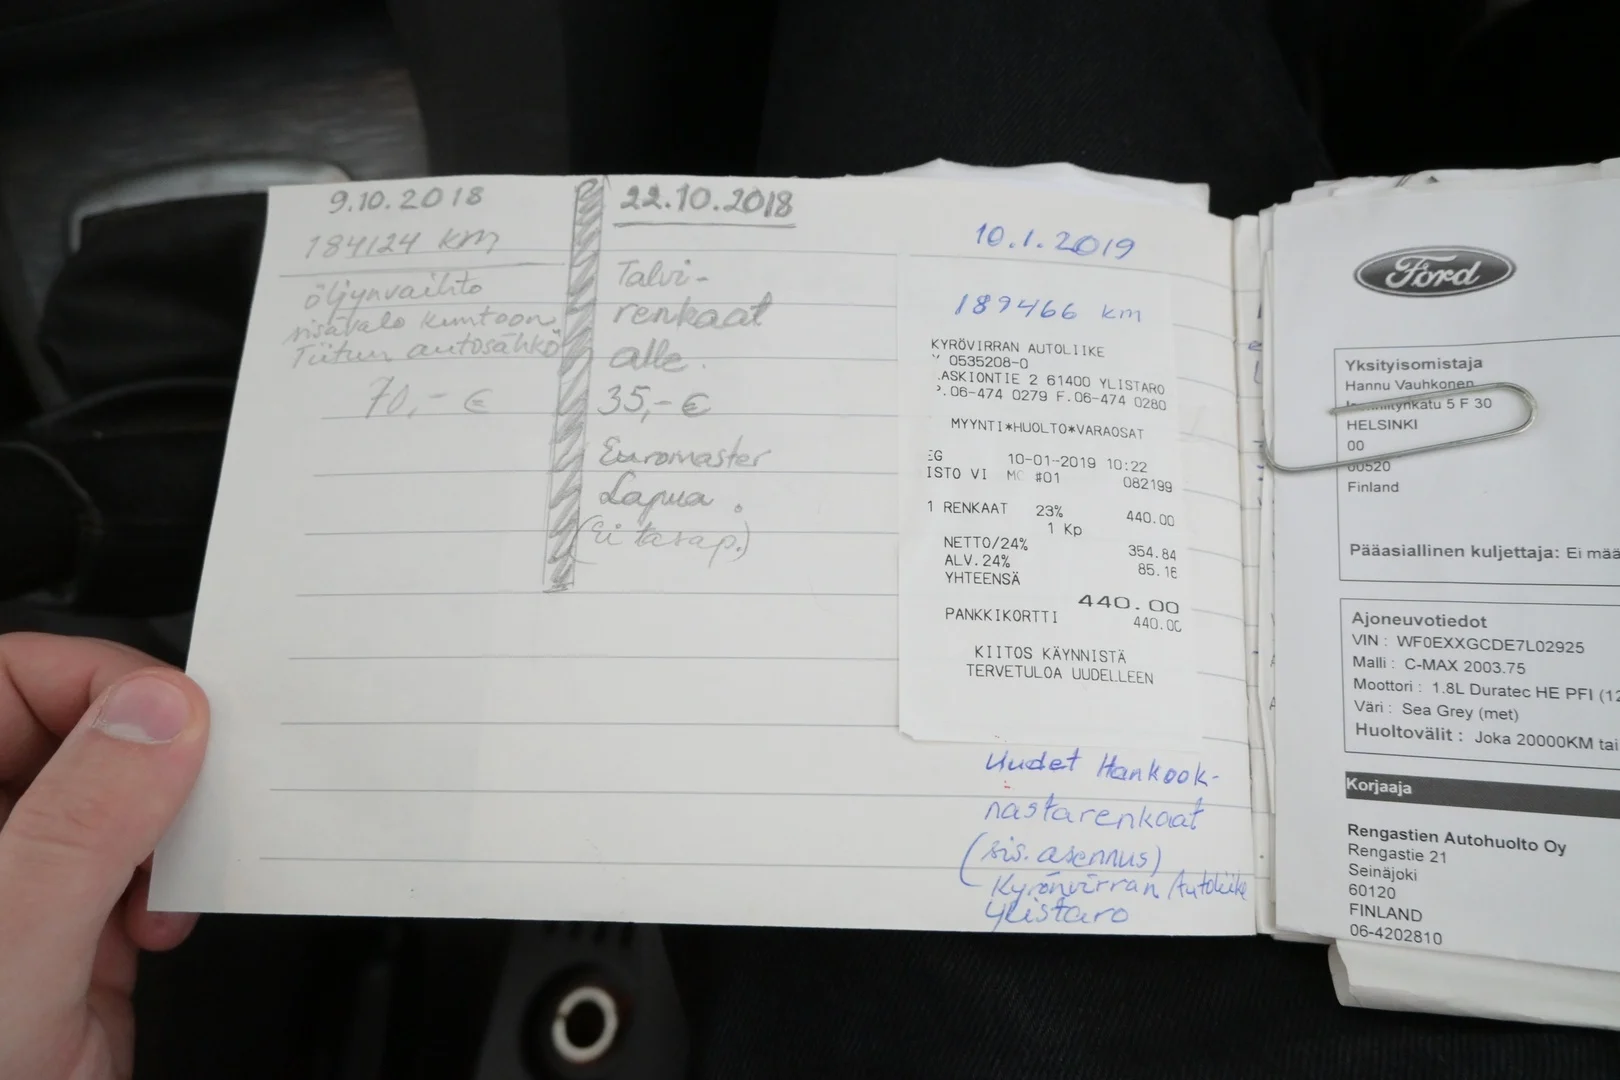 9.10.2018
184124 km
öljynvaihto
sisävalo kuntoon
Tiitun autosähkö
70,- €
22.10.2018
Talvi-
renkaat
alle.
35,- €
Euromaster
Lapua.
(Ei tasap.)
10.1.2019
189466 km
KYRÖVIRRAN AUTOLIIKE
Y 0535208-0
ASKIONTIE 2 61400 YLISTARO
P.06-474 0279 F.06-474 0280
MYYNTI*HUOLTO*VARAOSAT
EG 10-01-2019 10:22
ISTO VI MC #01 082199
1 RENKAAT 23% 440.00
1 Kp
NETTO/24% 354.84
ALV.24% 85.16
YHTEENSÄ
440.00
PANKKIKORTTI 440.00
KIITOS KÄYNNISTÄ
TERVETULOA UUDELLEEN
Uudet Hankook-
nastarenkaat
(sis. asennus)
Kyrönvirran Autoliike
Ylistaro
Ford
Yksityisomistaja
Hannu Vauhkonen
5 F 30
HELSINKI
00
00520
Finland
Pääasiallinen kuljettaja: Ei mää
Ajoneuvotiedot
VIN : WF0EXXGCDE7L02925
Malli : C-MAX 2003.75
Moottori : 1.8L Duratec HE PFI (12
Väri : Sea Grey (met)
Huoltovälit : Joka 20000KM tai
Korjaaja
Rengastien Autohuolto Oy
Rengastie 21
Seinäjoki
60120
FINLAND
06-4202810